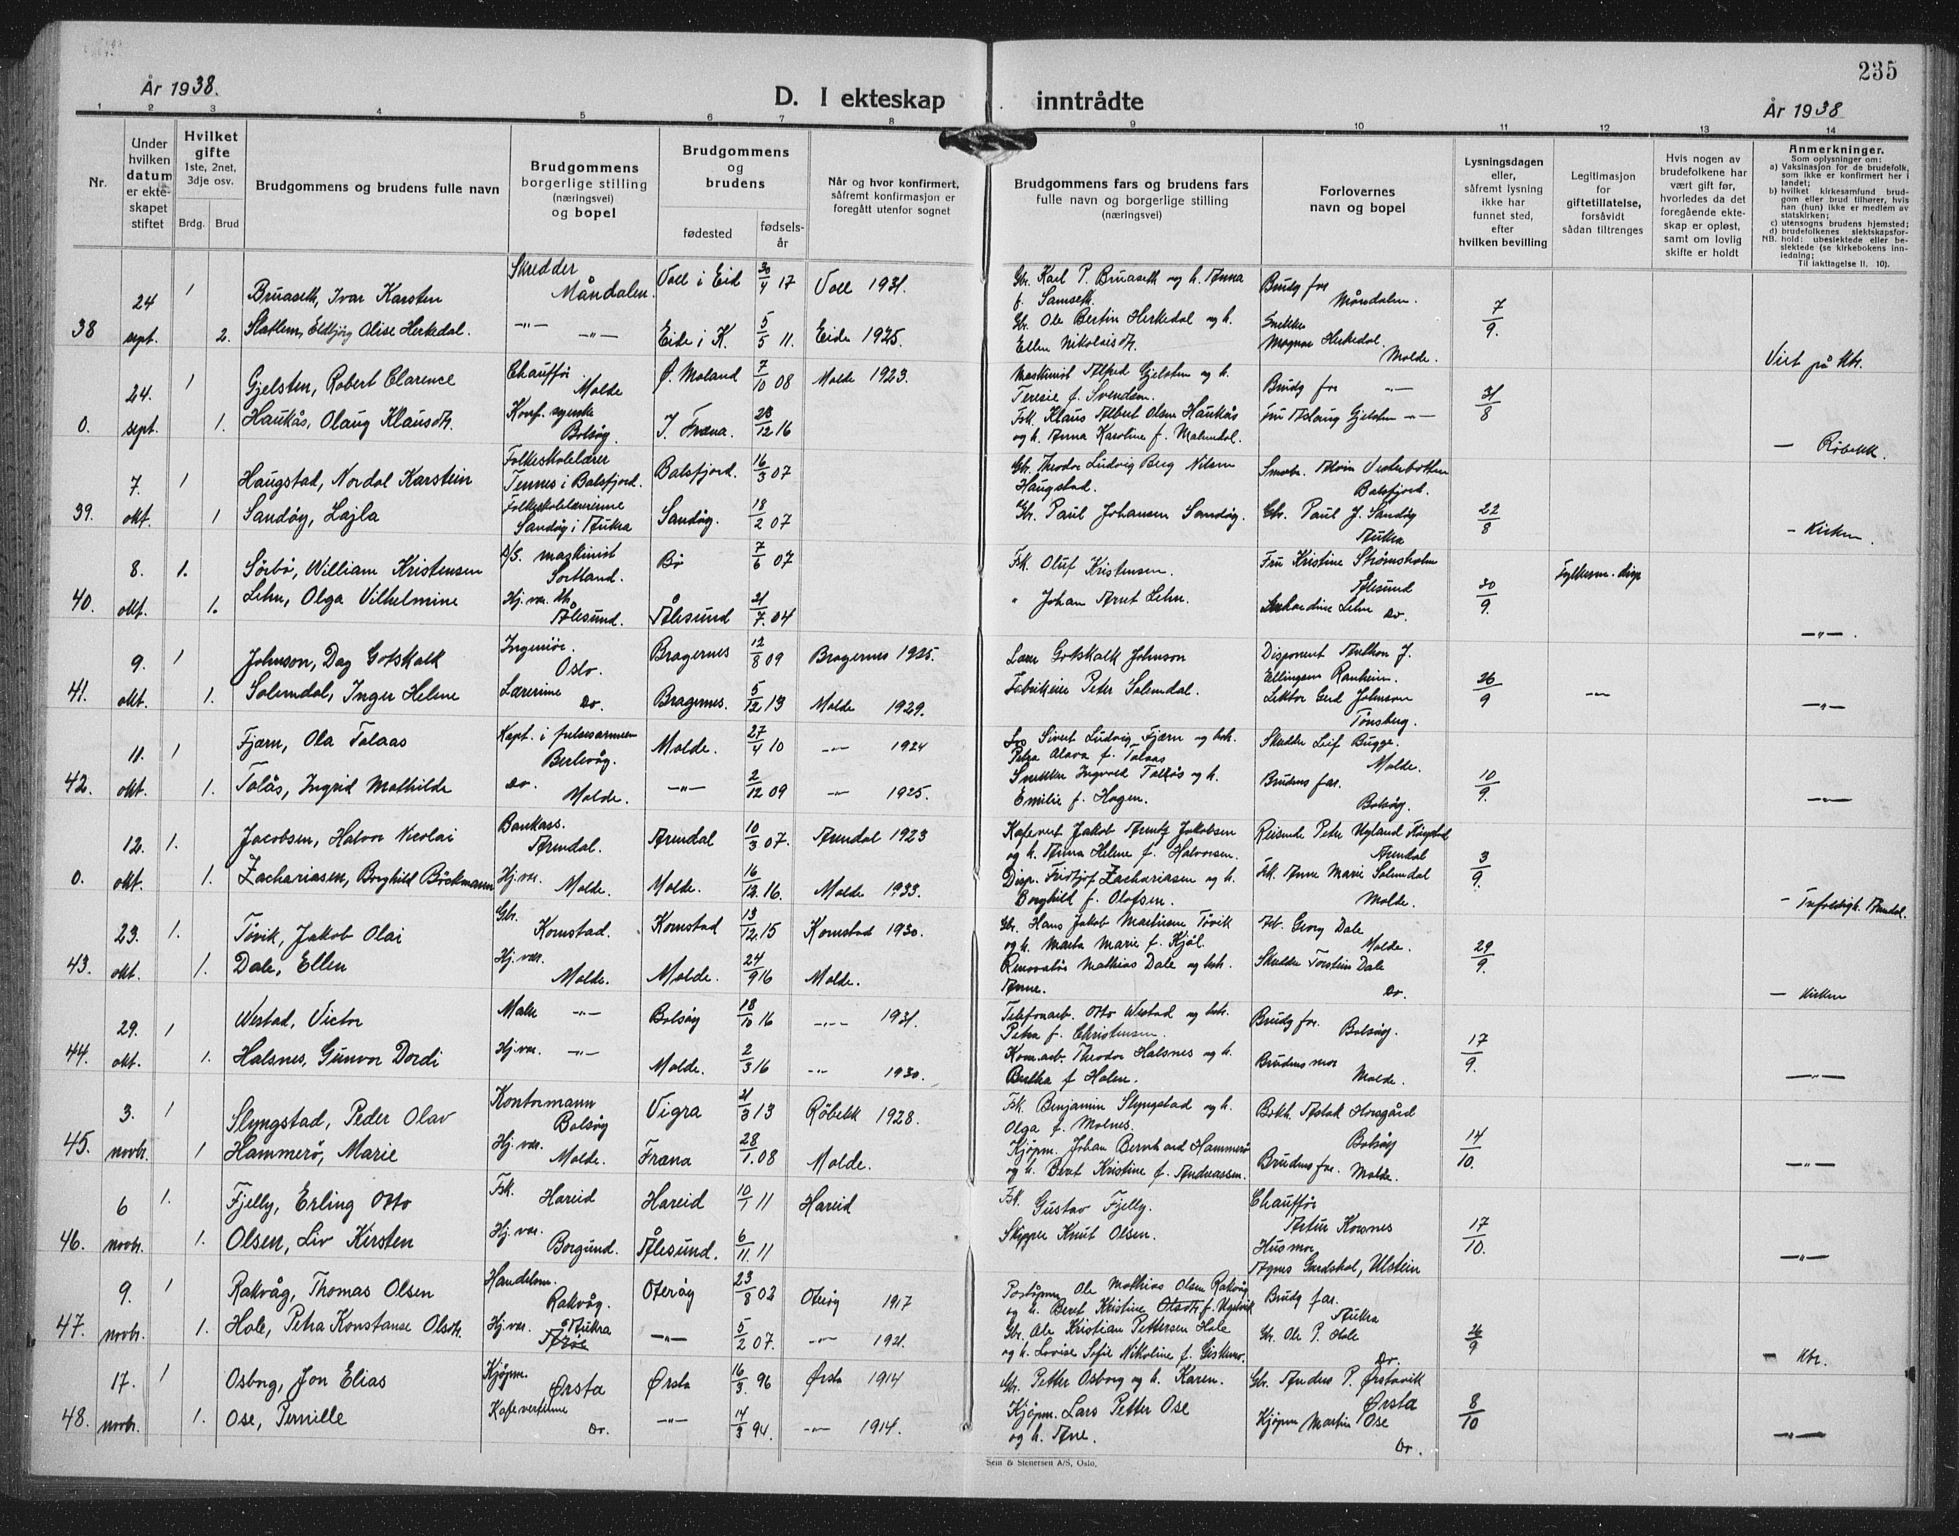 235
År 1938.
D. I ekteskap inntrådte
År 1938
1 2 3 4 5 6 7 8 9 10 11 12 13 14
Nr.
Under hvilken datum er ekteskapet stiftet
Hvilket gifte
1ste, 2net, 3dje osv.
Brdg. Brud
Brudgommens og brudens fulle navn
Brudgommens borgerlige stilling (næringsvei) og bopel
Brudgommens og brudens
fødested
fødselsår
Når og hvor konfirmert, såfremt konfirmasjon er foregått utenfor sognet
Brudgommens fars og brudens fars fulle navn og borgerlige stilling (næringsvei)
Forlovernes navn og bopel
Lysningsdagen eller, såfremt lysning ikke har funnet sted, efter hvilken bevilling
Legitimasjon for giftetillatelse, forsåvidt sådan tiltrenges
Hvis nogen av brudefolkene har vært gift før, hvorledes da det foregående ekteskap er opløst, samt om lovlig skifte er holdt
Anmerkninger.
Som oplysninger om:
a) Vaksinasjon for de brudefolk, som ikke er konfirmert her i landet;
b) hvilket kirkesamfund brudgom eller brud tilhører, hvis han (hun) ikke er medlem av statskirken;
c) utensogns brudens hjemsted;
d) brudefolkenes slektskapsforhold: ubeslektede eller beslektede (se kirkebokens innledning);
NB. Til iakttagelse II. 10).
24 1 Bruaseth, Ivar Karsten Skredder Måndalen. Voll i Eid 30/4 17 Voll 1931. Gbr. Karl P. Bruaseth og h. Anna f. Samseth. Brudg far Måndalen. 7/9.
38 sept. 2. Slatlem, Eldbjørg Olise Herkedal. -"- -"- Eide i K. 5/5 11. Eide 1925 Gbr. Ole Bertin Herkedal og h. Ellen Nikolaisdt. Snekker Magnar Herkedal. Molde. Viet på kbr.
24. 1 Gjelsten, Robert Clarence Chauffør Molde Ø. Moland 7/10 08 Molde 1923. Maskinist Alfred Gjelsten og h. Teresie f. Svendsen. Brudg far -"- 31/8
0. sept. 1. Haukås, Olaug Klausdt. Konf. syerske Bolsøy. I. Fræna. 28/12 16 Fsk. Klaus Albert Olsen Haukås og h. Anna Karoline f. Malmedal. Fru Aslaug Gjelsten -"- — Røbekk.
7. 1 Haugstad, Nordal Karstein Folkeskolelærer Tennes i Balsfjord. Balsfjord. 16/3 07 Gbr. Theodor Ludvig Berg Nilsen Haugstad. Smabr. Alvin Vesterbotten Balsfjord. 22/8
39. okt. 1 Sandøy, Lajla Folkeskolelærerinne Sandøy i Aukra Sandøy. 18/2 07 Gbr. Paul Johansen Sandøy. Gbr. Paul J. Sandøy Aukra - Kirken
8. 1. Sörbö, William Kristensen D/S. maskinist Sortland. Bø 7/6 07 Fsk. Oluf Kristensen. Fru Kristine Strømsholm Ålesund 30/9. Fylkesm. disp
40. okt. 1. Lehn, Olga Vilhelmine Hj. vær. Ålesund. Ålesund 21/7. 04 " Johan Arnt Lehn. Lehn. Do. —"—.
9. 1 Johnson, Dag Gotskalk Ingeniør. Oslo. Bragernes 12/8 09 Bragernes 1925. Lærer Gotskalk Johnson Disponent J. Ellingsen Ranheim. 26/9 —"—
41. okt. 1. Solemdal, Inger Helene Lærerinne Do. Bragernes. 5/12 13 Molde 1929. Fabrikeier Peter Solemdal. Lektor Gerd Johnson Tønsberg. —"—
11. 1 Fjærn, Ola Talaas Kapt. i frelsesarmeen Berlevåg. Molde. 27/4 10 -"- 1924 Sivert Ludvig Fjærn og h. Petra Olava f. Talaas Skredder Leif Bugge. Molde. 10/9.
42. okt. 1. Talås, Ingrid Mathilde Do. Molde. —"— 2/12 09 -"- 1925. Snekker Ingvald Talås og h. Emilie f. Hagen. Brudens far. Bolsøy. —"—
12. 1. Jacobsen, Halvor Nicolai Bankass. Arendal. Arendal 10/3 07. Arendal 1923 Kafevert Jakob Arntz Jakobsen og h. Anna Helene f. Halvorsen. Reisende Peter Ugland Arendal 3/9.
0. okt. 1. Zachariasen, Borghild Böckmann Hj. vær. Molde. Molde. 16/12. 16. Molde 1933. Disp. Fridtjof Zachariasen og h. Borghild f. Olafsen. Frk. Anne Marie Solemdal Molde. - Trefoldigh. Arendal.
23. 1. Tövik, Jakob Olai Gbr. Kornstad. Kornstad 13/12. 15 Kornstad 1930. Gbr. Hans Jakob Martinsen Tövik og h. Marta Marie f. Kjøl. Georg Dale Molde. 29/9.
43. okt. 1. Dale, Ellen Hj. vær. Molde. Molde. 24/9 16 Molde. Renovatør Mathias Dale og h. Anne. Skredder Torstein Dale Do. — Kirken
29. 1 Westad, Victor Maler -"- Bolsøy 18/10 16 -"- 1931. Telefonarb. Otto Westad og h. Petra f. Christensen. Brudg far. Bolsøy. 17/9.
44. okt. 1. Halsnes, Gunvor Dordi Hj. vær. -"- Molde. 2/3 16 -"- 1930. Kom.arb. Theodor Halsnes og h. Bertha f. Holen. Brudens mor Molde. —"—
3. 1 Slyngstad, Peder Olav Kontormann Bolsøy Vigra 21/3 13 Røbekk 1928. Fsk. Benjamin Slyngstad og h. Olga f. Molnes. Bokh. Horsgård Bolsøy 14/10.
45. novbr. 1 Hammerö, Marie Hj. vær. Molde. Fræna 28/1. 08 Molde. Kjøpm. Johan Bernhard Hammerö og h. Beret Kristine f. Andreassen. Brudens far. Molde. —"—
6 1. Fjelly, Erling Otto Fsk. Hareid Hareid 10/1 11 Hareid Fsk. Gustav Fjelly. Chauffør Artur Kornes 17/10.
46. novbr. 1. Olsen, Liv Kirsten Hj. vær. Borgund. Ålesund. 6/11 11 Skipper Knut Olsen. Husmor Agnes Gardskal, Ulstein —"—
9. 1 Rakvåg, Thomas Olsen Handelsm. Rakvåg. Oterøy 23/8 02 Oterøy 1917 Ole Mathias Olsen Rakvåg og h. Beret Kristine Olsdt. f. Ugelvik Brudg far. Aukra 26/9
47. novbr. 1. Hole, Petra Konstanse Olsdt. Hj. vær. Aukra —"— 5/2 07. -"- 1921. Gbr. Ole Kristian Pettersen Hole og h. Lovise Sofie Nikoline f. Giskemo. Gbr. Ole P. Hole Do. — Kbr.
17. 1 Osborg, Jon Elias Kjøpm. Ørsta Ørsta 16/3. 96 Ørsta 1914 Gbr. Petter Osborg og h. Karen. Gbr. Anders P. Ørstavik Ørsta 8/10
48. novbr. 1. Ose, Pernille Kafevertinne Do. —"— 14/3 94. -"- 1914. Kjøpm. Lars Petter Ose og h. Ane. Kjøpm Martin Ose Do. —"—
Sem & Stenersen A/S, Oslo.